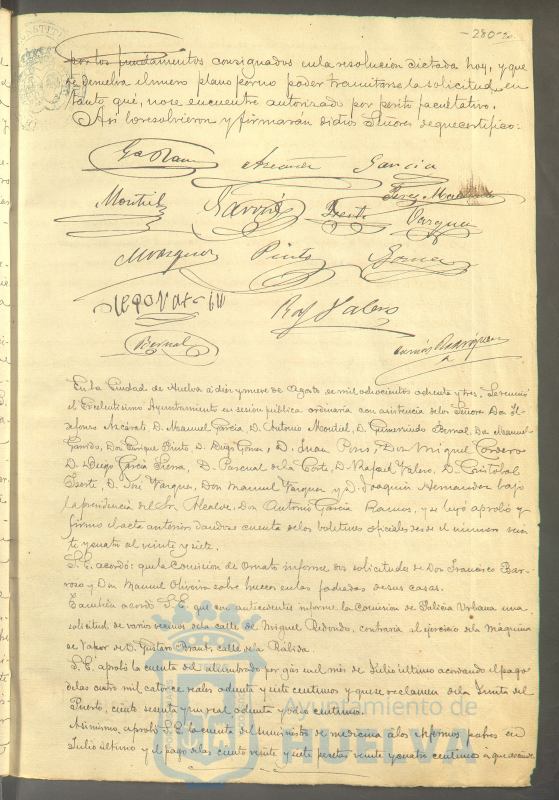 -280-
por los fundamentos consignados en la resolucion dictada hoy, y que
se devuelva el mismo plano por no poder tramitarse la solicitud en
tanto que, no se encuentre autorizado por perito facultativo.
Asi lo resolvieron y firmarán dichos Señores de que certifico:
Garcia
Montiel Garrido Vargas
Pinto Gomez
Raf Valero
Bernal
En la Ciudad de Huelva á diez y nueve de Agosto, de mil ochocientos ochenta y tres, se reunió
el Excelentisimo Ayuntamiento en sesion publica ordinaria con asistencia de los Señores Don Il-
defonso Azcárate D. Manuel Garcia, D. Antonio Montiel, D. Gumersindo Bernal, Don Manuel
Garrido, Don Enrique Pinto, D. Diego Gomez, D. Juan Pons, Don Miguel Cordero
D. Diego Garcia D. Pascual de la Corte, D. Rafael Valero, D. Cristobal
D. José Vargas, Don Manuel Vazquez y D. Joaquin Hernandez bajo
la presidencia del Sr. Alcalde, Don Antonio Garcia Ramos, y se leyó aprobó y
firmó el acta anterior dandose cuenta de los boletines oficiales desde el numero vein
te y cuatro al veinte y siete.
S. E. acordó: que la Comision de Ornato informe dos solicitudes de Don Francisco Bar-
roso y Don Manuel Oliveira sobre huecos en las fachadas de sus casas.
Tambien acordó S. E. que con antecedentes informe la Comision de Policia Urbana una
solicitud de varios vecinos de la calle de Miguel Redondo, contraria al ejercicio de la máquina
de Vapor de D. Gustavo calle de la Rábida.
S. E. aprobó la cuenta del alumbrado por gás en el mes de Julio último acordando el pago
de las cuatro mil catorce reales ochenta y siete centimos y que se reclamen de la Junta del
Puerto, ciento sesenta y un real ochenta y dos centimos.
Asimismo, aprobó S. E. la cuenta del suministro de medicina á los enfermos pobres en
Julio último y el pago de las ciento veinte y siete pesetas veinte y cuatro centimos á que asciende
Ayuntamiento de
HUELVA